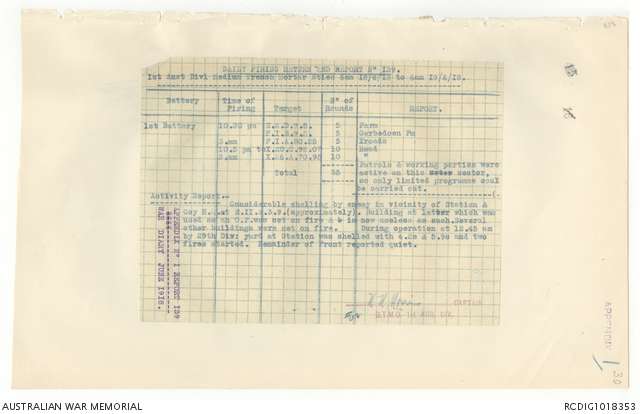 DAILY FIRING RETURN AND REPORT Nº 139.
1st Aust Divl Medium Trench Mortar Btles 6am 18/6/18 to 6am 19/6/18.
Battery Time of Firing Target Nº of Rounds REPORT.
1st Battery 10.30 pm 5 Farm
5 Gerbedoen Fm
3.am 5 Xroads
10.5 pm to 10 Road
3.am 10 "
Patrols & working parties were
active on this sector,
so only limited programme coul
be carried out.
Total 35
Activity Report:-
Considerable shelling by enemy in vicinity of Station &
Coy H.Q. at (approximately). Building at latter which was
used as an O.P. was set on fire & is now useless as such. Several
other buildings were set on fire. During operation at 12.45 am
by 29th Div: yard at Station was shelled with 4.2s & 5.9s and two
fires started. Remainder of Front reported quiet.
CAPTAIN
D.T.M.O. 1st AUS. DIV.
APPENDIX Nº REPORT 139
WAR DIARY JUNE 1918.
APPENDIX 1
30
AUSTRALIAN WAR MEMORIAL
RCDIG1018353